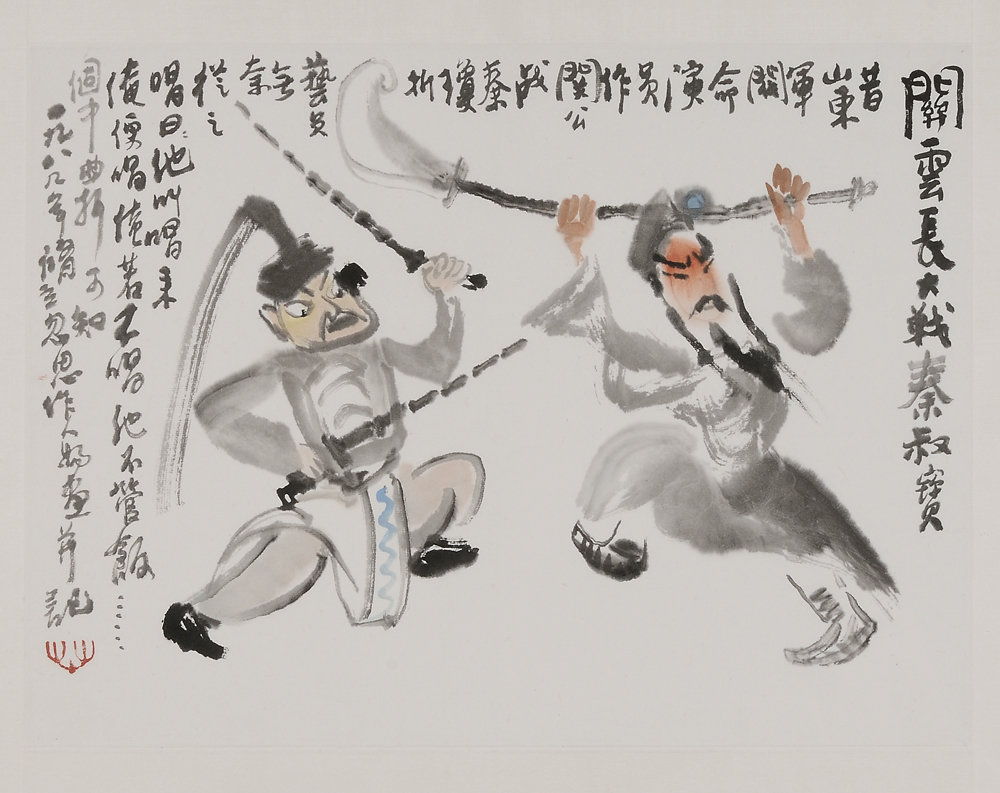 關雲長大戰秦叔寶
昔山東軍閥命演员作關公战秦瓊折
藝员無奈從之
唱曰:他叫唱来
俺便唱俺若不唱他不管飯……
個中曲折可知
一九八九年忽思作人物畫并記